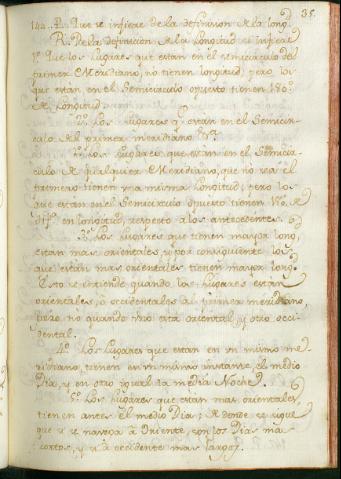 35.
144. P. Que se infiere de la definision de la long.d
R. De la definicion de la Longitud se infiere
1.o Que los Lugares que estan en el semicirculo del
primer Meridiano, no tienen longitud, pero los
que estan en el Semicirculo opuesto tienen 180.o
de Longitud.
Los Lugares q.e estan en el Semicir-
culo del primer meridiano
2.o Los Lugares que estan en el Semicir-
culo de qualquiera Meridiano, que no sea el
primero tienen una misma Longitud, pero los
que estan en el Semicirculo opuesto tienen
en longitud, respecto a los antecedentes.
3.o Los Lugares que tienen mayor long.d
estan mas orientales, y por consiguiente los
que estan mas orientales tienen mayor long.d
Esto se entiende quando los Lugares estan
orientales, ò occidentales al primer meridiano,
pero no quando uno està oriental, y otro occi-
dental.
4.o Los Lugares que estan en un mismo me-
ridiano, tienen en un mismo instante, el medio
Dia, y en otro igual la media Noche.
5.o Los Lugares que estan mas orientales,
tienen antes el medio Dia; de donde se sigue
que si se navega à Oriente, son los Dias mas
cortos, y si à occidente mas largos.